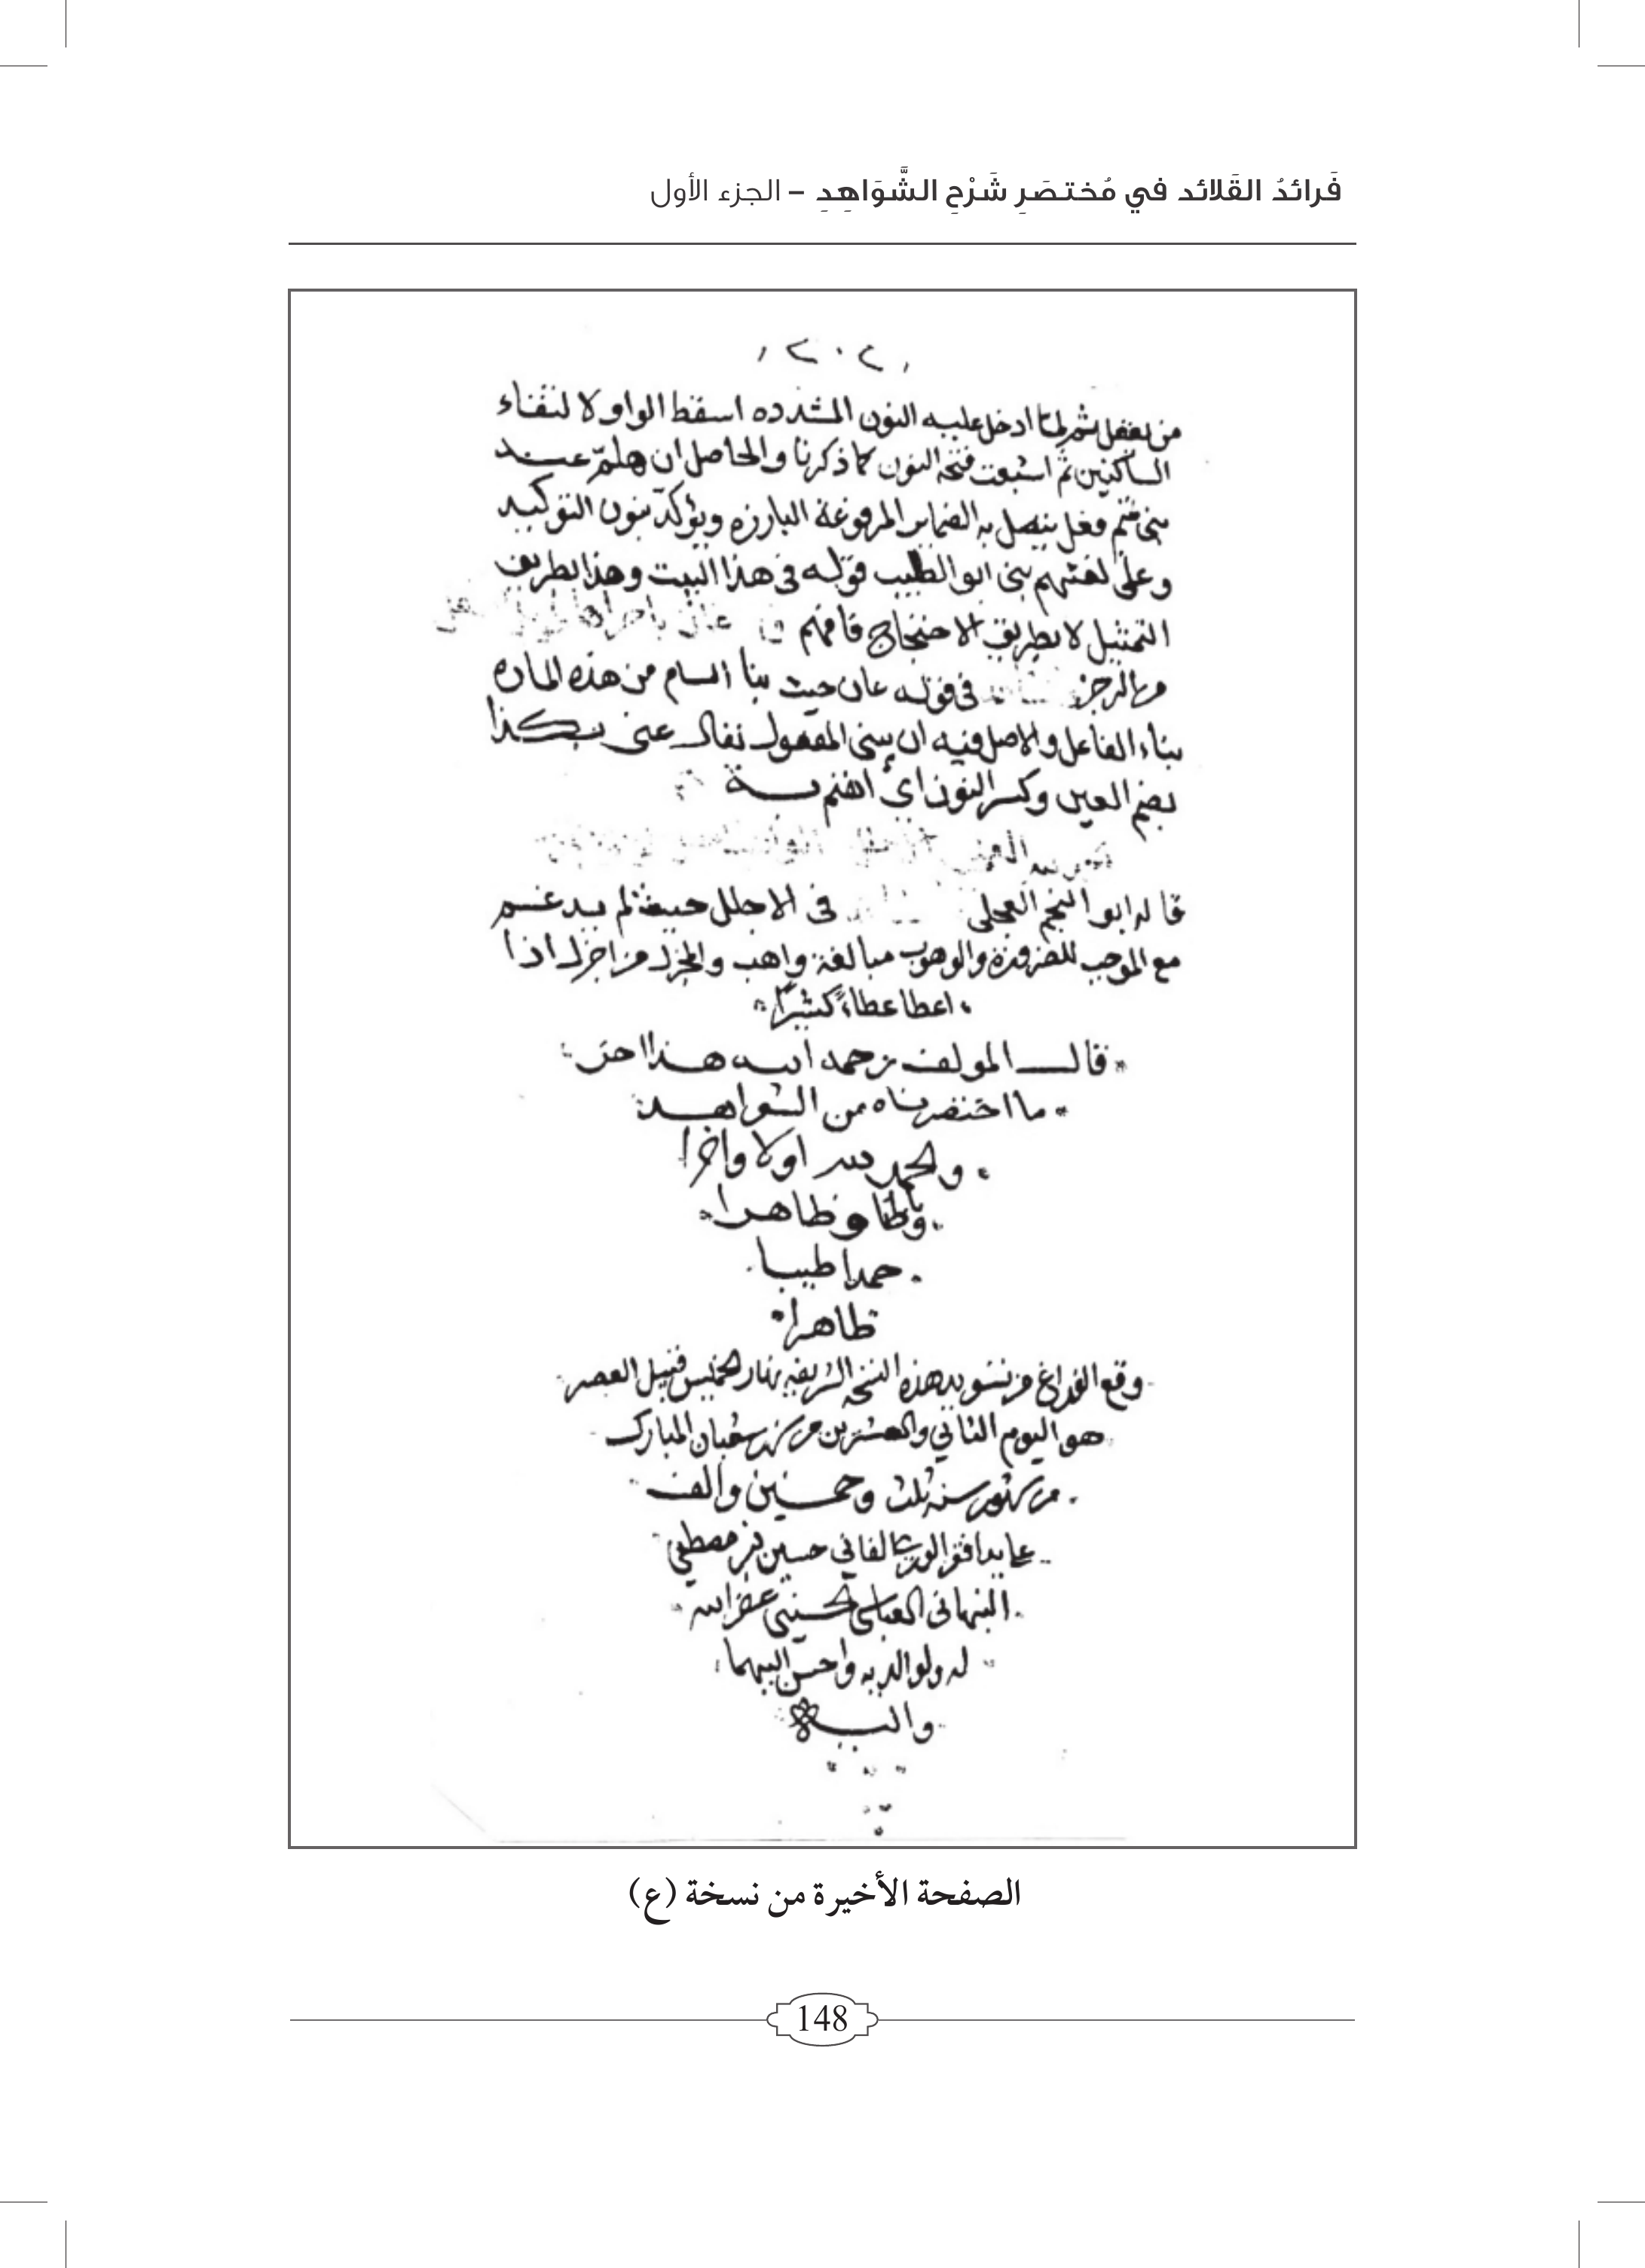 فَرائدُ القَلائد في مُختصَرِ شَرْحِ الشَّوَاهِدِ – الجزء الأول
من يفعل ثم لما ادخل عليه النون المشدده اسقط الواو لالتقاء
الساكنين ثم اشبعت فتحة النون كما ذكرنا والحاصل ان هلمّ عند
بني تميم فعل يتصل به الضماير المرفوعة البارزه ويؤكد بنون التوكيد
وعلى لغتهم بنى ابو الطيب قوله في هذا البيت وهذا بطريق
التمثيل لا بطريق الاحتجاج فافهم
الرجز في قوله عان حيث بنا السام من هذه الماده
بناء الفاعل والاصل فيه ان يبنى للمفعول يقال عني بكذا
بضم العين وكسر النون اي اهتم به
قاله ابو النجم العجلي في الاجلل حيث لم يدغم
مع الموجب للضرورة والوهوب مبالغة واهب والمجزل من اجزل اذا
اعطا عطاءً كثيرًا
قال المولف رحمه الله هذا اخر
ما اختصرناه من الشواهد
والحمد لله اولا واخرا
وباطنا وظاهرا
حمدا طيبا
طاهرا
وقع الفراغ من تسويد هذه النسخه الشريفه نهار الخميس قبيل العصر
هو اليوم الثاني والعشرين من شهر شعبان المبارك
من شهور سنه ثلث وخمسين والف
على يد افقر الورى الفاني حسين بن مصطفى
النبهاني العباسي الحسيني غفر الله
له ولوالديه واحسن اليهما
واليه
الصفحة الأخيرة من نسخة (ع)
148